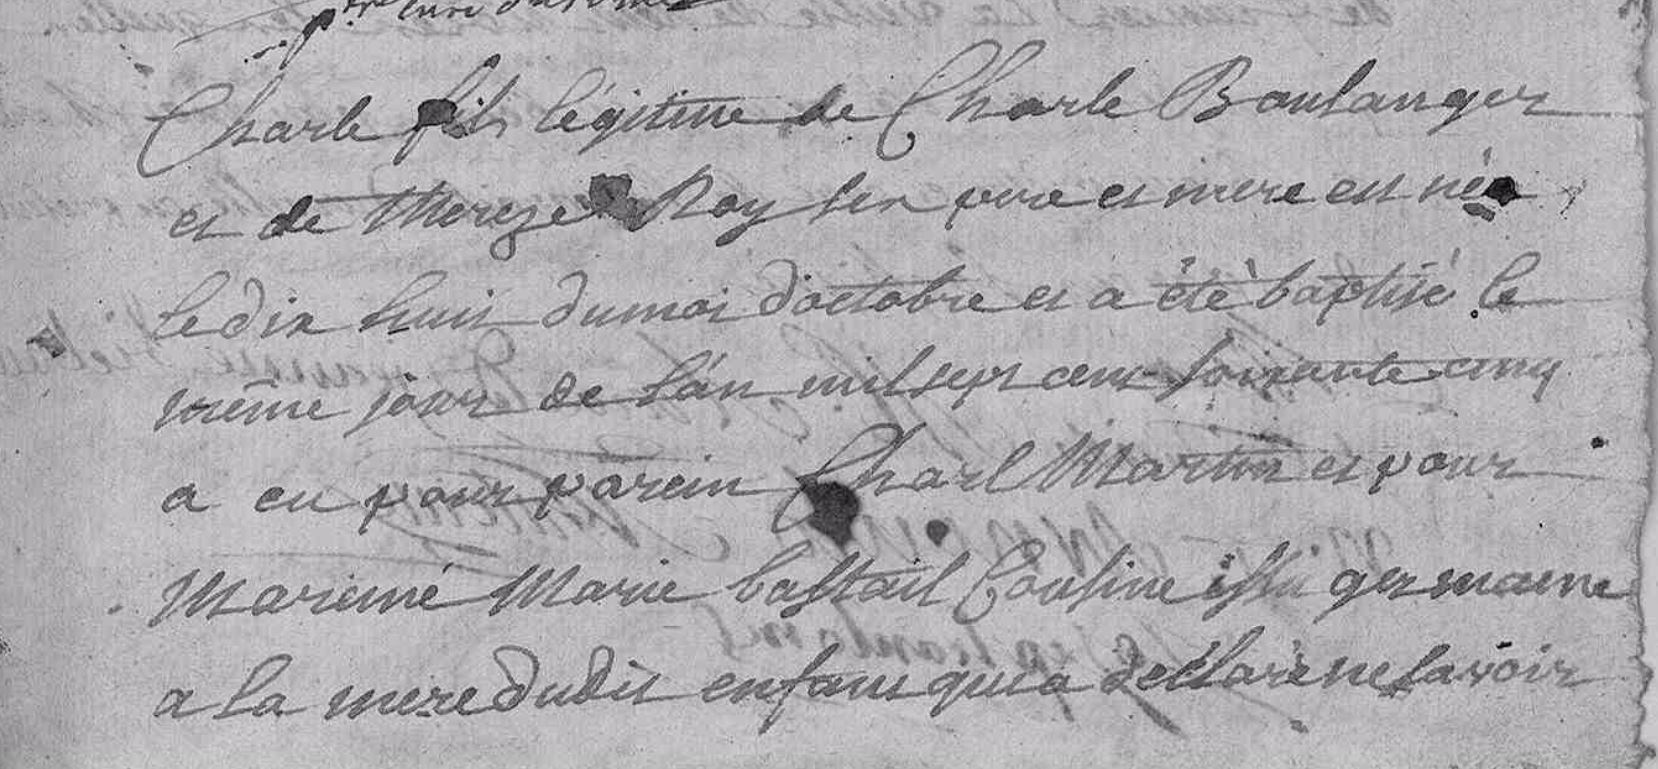 ptre curé
Charle fils légitime de Charle Boulanger
et de Thereze Roy ses pere et mere est né
le dix huit du moi d'octobre et a été baptisé le
même jour de l'an mil sept cent soixante cinq
a eu pour parein Charl Martin et pour
Mareinné Marie bastail Cousine issu germaine
a la mere dudit enfant qui a déclaré ne savoir